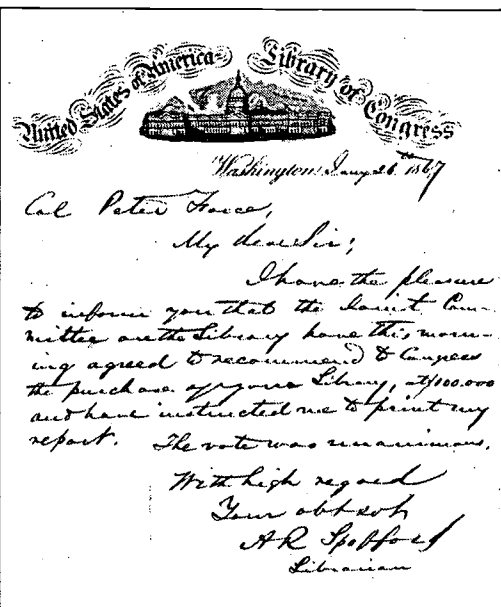 United States of America Library of Congress
Washington, Jany 26th 1867
Col Peter Force,
My dear Sir;
I have the pleasure
to inform you that the Joint Com-
mittee on the Library have this morn-
ing agreed to recommend to Congress
the purchase of your Library, at $100.000
and have instructed me to print my
report. The vote was unanimous.
With high regard
Your obt svt
A R Spofford
Librarian